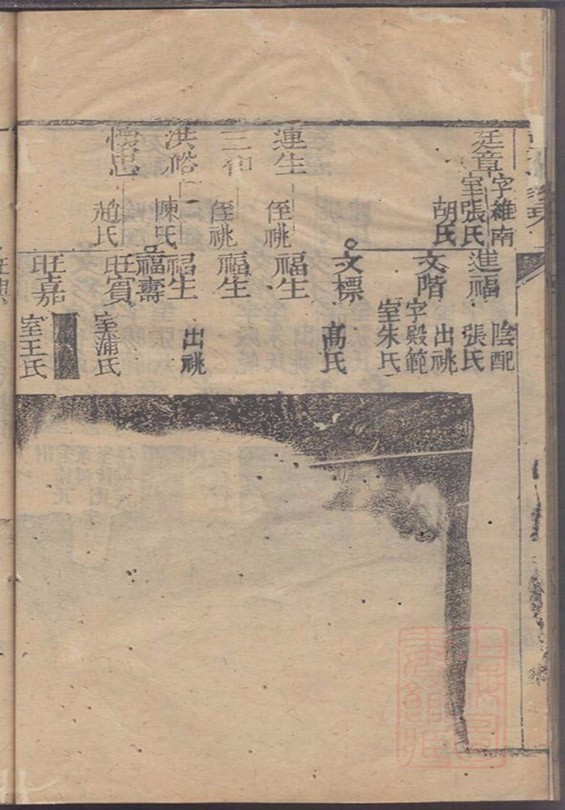 廷章
字維南
室張氏
胡氏
連生
侄祧
三和
侄祧
洪裕
陳氏
懷忠
趙氏
進福
陰配
張氏
文階
出祧
字殿範
室朱氏
文標
高氏
福生
福生
福生
出祧
福壽
旺賓
室浦氏
旺嘉
室王氏